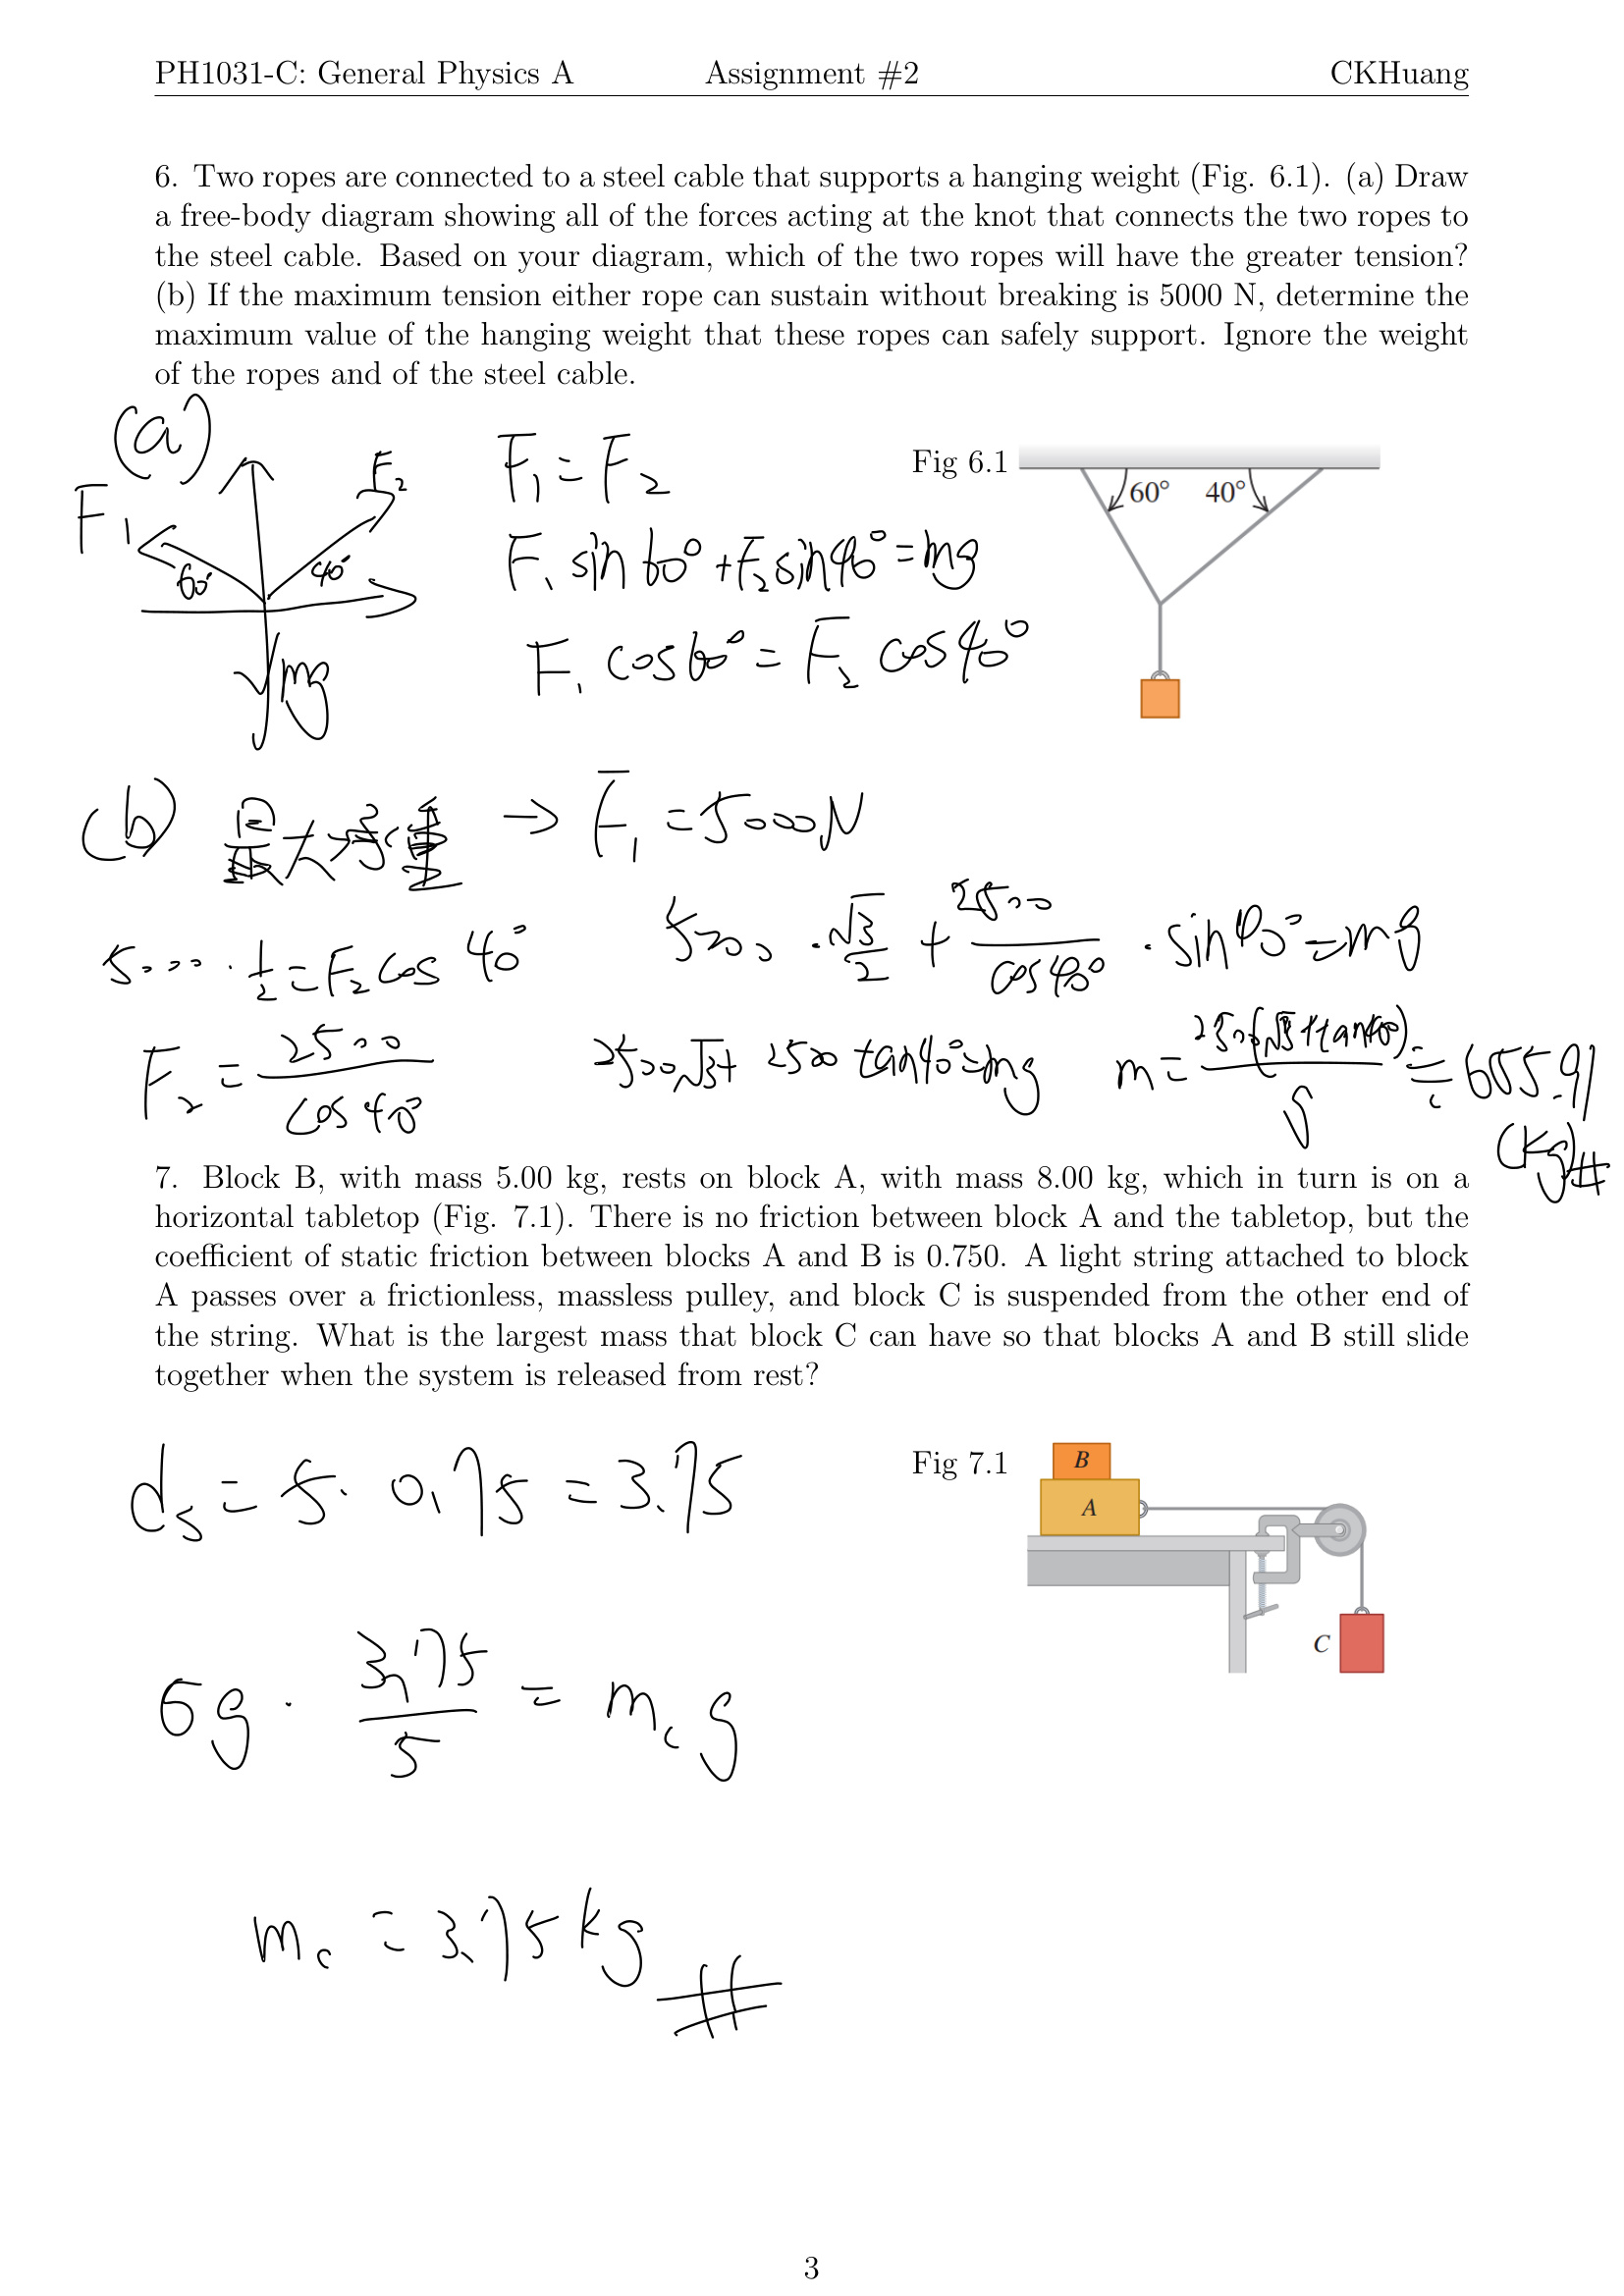 PH1031-C: General Physics A Assignment #2 CKHuang
6. Two ropes are connected to a steel cable that supports a hanging weight (Fig. 6.1). (a) Draw
a free-body diagram showing all of the forces acting at the knot that connects the two ropes to
the steel cable. Based on your diagram, which of the two ropes will have the greater tension?
(b) If the maximum tension either rope can sustain without breaking is 5000 N, determine the
maximum value of the hanging weight that these ropes can safely support. Ignore the weight
of the ropes and of the steel cable.
(a)
F₁ F₂
60° 40°
mg
F₁ = F₂
F₁ sin 60° + F₂ sin 40° = mg
F₁ cos 60° = F₂ cos 40°
Fig 6.1
60° 40°
(b) 最大承重 → F₁ = 5000N
5000 · 1/2 = F₂ cos 40°
5000 · √3/2 + 2500/cos40° · sin40° = mg
F₂ = 2500/cos 40°
2500√3 + 2500 tan40° = mg
m = 2500(√3+tan40°)/g ≒ 655.91
(kg)#
7. Block B, with mass 5.00 kg, rests on block A, with mass 8.00 kg, which in turn is on a
horizontal tabletop (Fig. 7.1). There is no friction between block A and the tabletop, but the
coefficient of static friction between blocks A and B is 0.750. A light string attached to block
A passes over a frictionless, massless pulley, and block C is suspended from the other end of
the string. What is the largest mass that block C can have so that blocks A and B still slide
together when the system is released from rest?
= 5 · 0.75 = 3.75
Fig 7.1
B
A
C
g · 3.75/5 = m_c g
m_c = 3.75 kg #
3